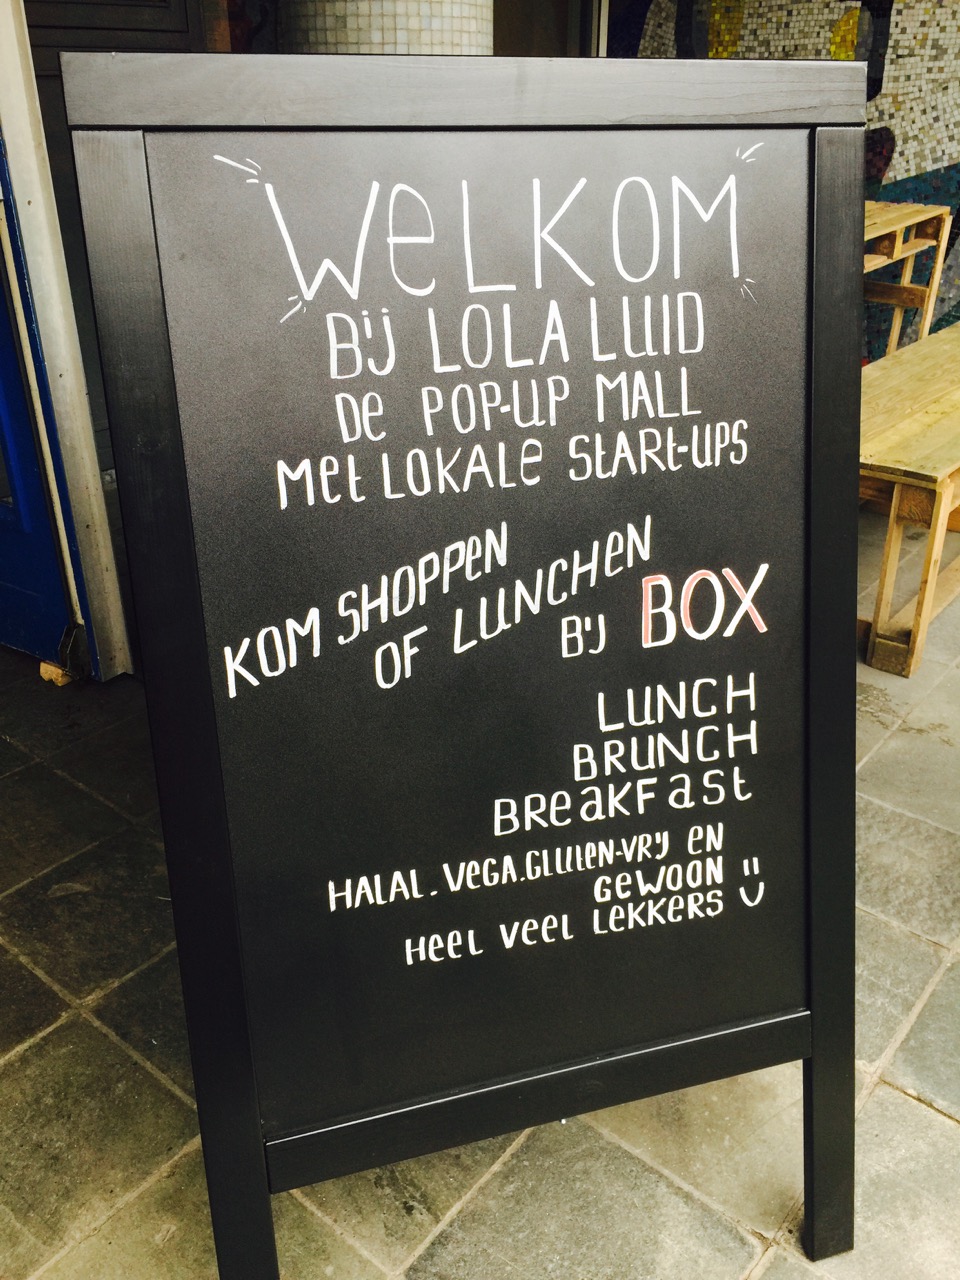 WeLKOM
BIJ LOLA LUID
De POP-UP MALL
Met LOKALe StARt-UPS
KOM SHOPPeN
OF LUNCHeN
BIJ BOX
LUNCH
BRUNCH
BReaKFast
HALAL. VeGA. GLUteN-VRIJ eN
GeWOON
HeeL VeeL LeKKeRS :)